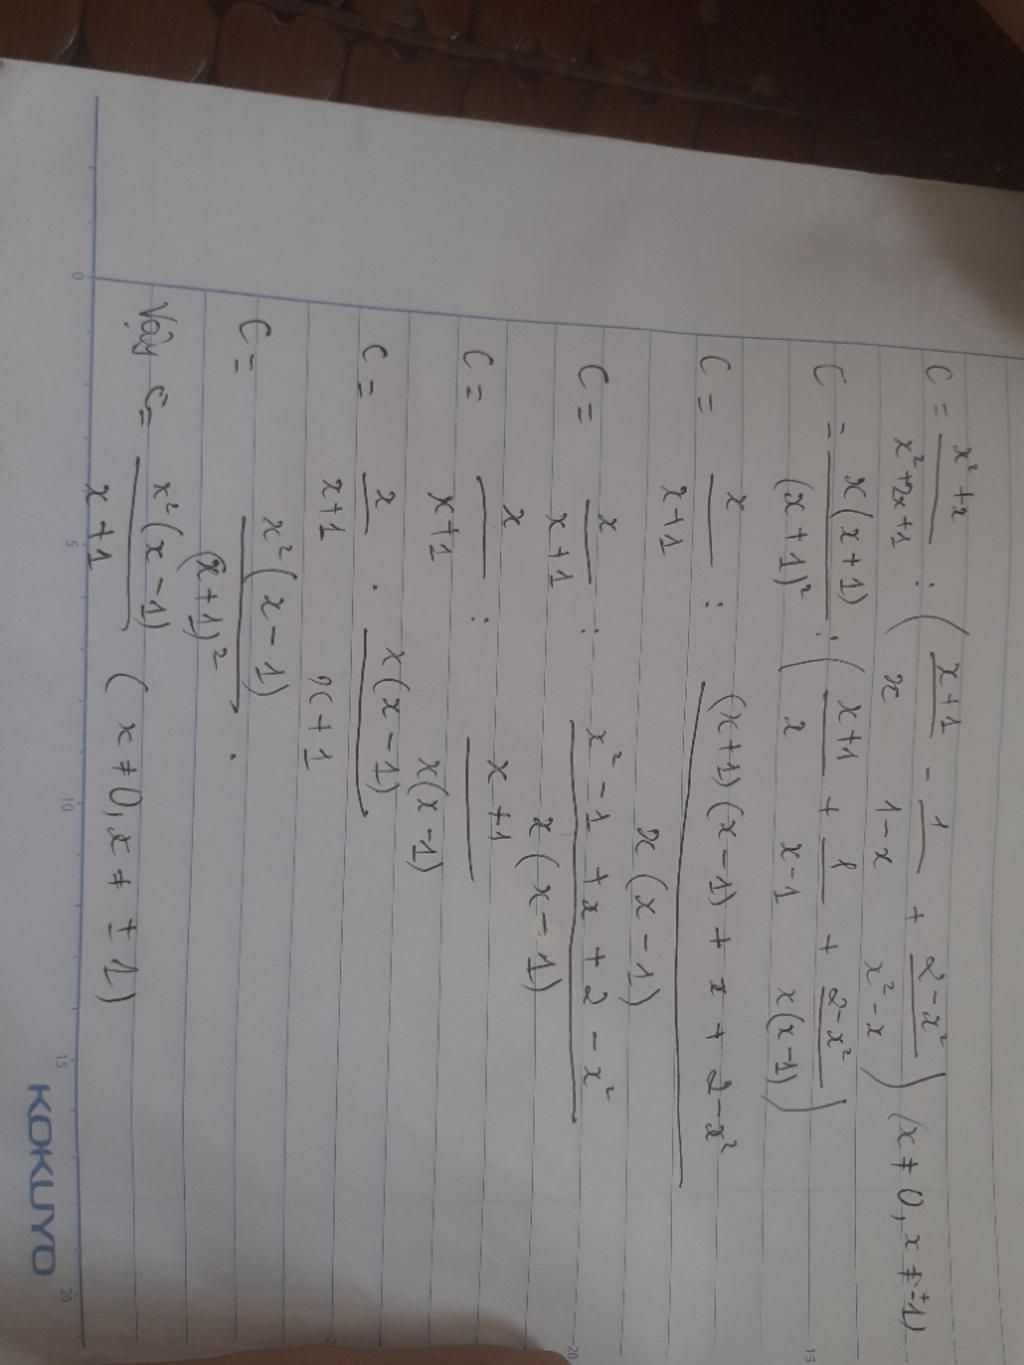 C = \frac{x^2+x}{x^2+2x+1} : \left( \frac{x+1}{x} - \frac{1}{1-x} + \frac{2-x^2}{x^2-x} \right) (x ≠ 0, x ≠ ±1)
C = \frac{x(x+1)}{(x+1)^2} : \left( \frac{x+1}{x} + \frac{1}{x-1} + \frac{2-x^2}{x(x-1)} \right)
C = \frac{x}{x+1} : \frac{(x+1)(x-1) + x + 2-x^2}{x(x-1)}
C = \frac{x}{x+1} : \frac{x^2-1+x+2-x^2}{x(x-1)}
C = \frac{x}{x+1} : \frac{x+1}{x(x-1)}
C = \frac{x}{x+1} . \frac{x(x-1)}{x+1}
C = \frac{x^2(x-1)}{(x+1)^2} .
Vậy C = \frac{x^2(x-1)}{x+1} (x ≠ 0, x ≠ ±1)
0 5 10 15 20
KOKUYO
15
20